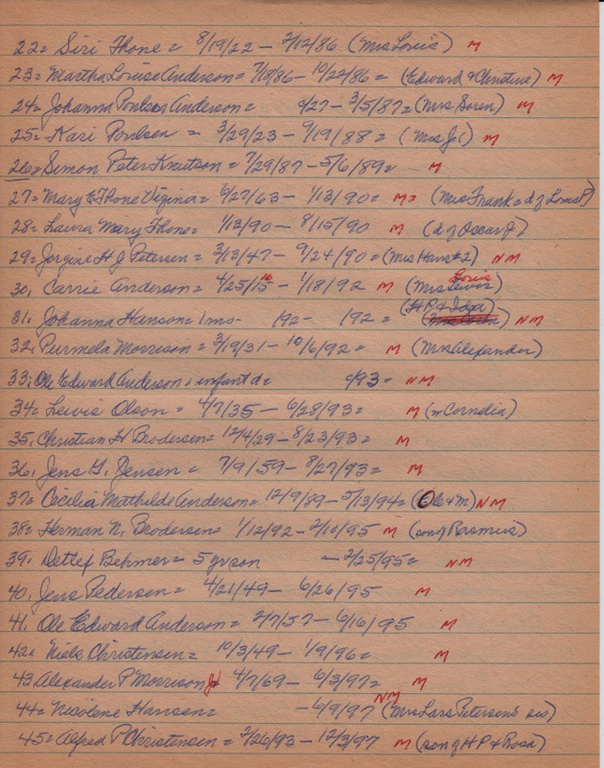 22= Siri Thone = 8/19/22 - 2/12/86 (Mrs Louis) M
23= Martha Louise Anderson = 7/18/86 - 10/22/86 = (Edward & Christine) M
24= Johanna Poulsen Anderson = 9/27 - 3/5/87 = (Mrs Soren) M
25= Kari Poulsen = 3/29/23 - 9/19/88 = (Mrs J.C) M
26= Simon Peter Knutson = 7/29/87 - 5/6/89 = M
27= Mary E Thone = 6/27/63 - 1/13/90 = M= (Mrs Frank = d of Louis)
28= Laura Mary Thone = 1/13/90 - 8/15/90 M (d of Oscar J)
29= Jorgine H J Petersen = 3/13/47 - 9/24/90 = (Mrs Hans #2) NM
30, Carrie Anderson = 4/25/15 - 1/18/92 M (Mrs Louis)
31, Johanna Hanson = 1 mo - 192 - 192 = (H P & Inga) NM
32, Purmela Morrison = 3/19/31 - 10/6/92 = M (Mrs Alexander)
33, Ole Edward Anderson, infant d = 6/93 = NM
34= Lewis Olson = 4/7/35 - 6/28/93 = M (w Cornelia)
35, Christian H Brodersen = 12/4/29 - 8/23/93 = M
36, Jens G. Jensen = 7/9/59 - 8/27/93 = M
37= Cecilia Mathilde Anderson = 12/9/89 - 5/13/94 = (Ole & M) NM
38= Herman N. Brodersen = 1/12/92 - 2/10/95 M (son of Rasmus)
39, Detlef Behmer = 5 yr son - 2/25/95 = NM
40, Jens Pedersen = 4/21/49 - 6/26/95 M
41, Ole Edward Anderson = 2/7/57 - 6/16/95 M
42= Niels Christensen = 10/3/49 - 1/9/96 = M
43, Alexander P Morrison Jr 4/7/69 - 6/3/97 = M
44= Nicolene Hansen = - 6/9/97 NM (Mrs Lars Petersen's sis)
45= Alfred P Christensen = 2/26/93 - 12/3/97 M (son of H P & Rosa)